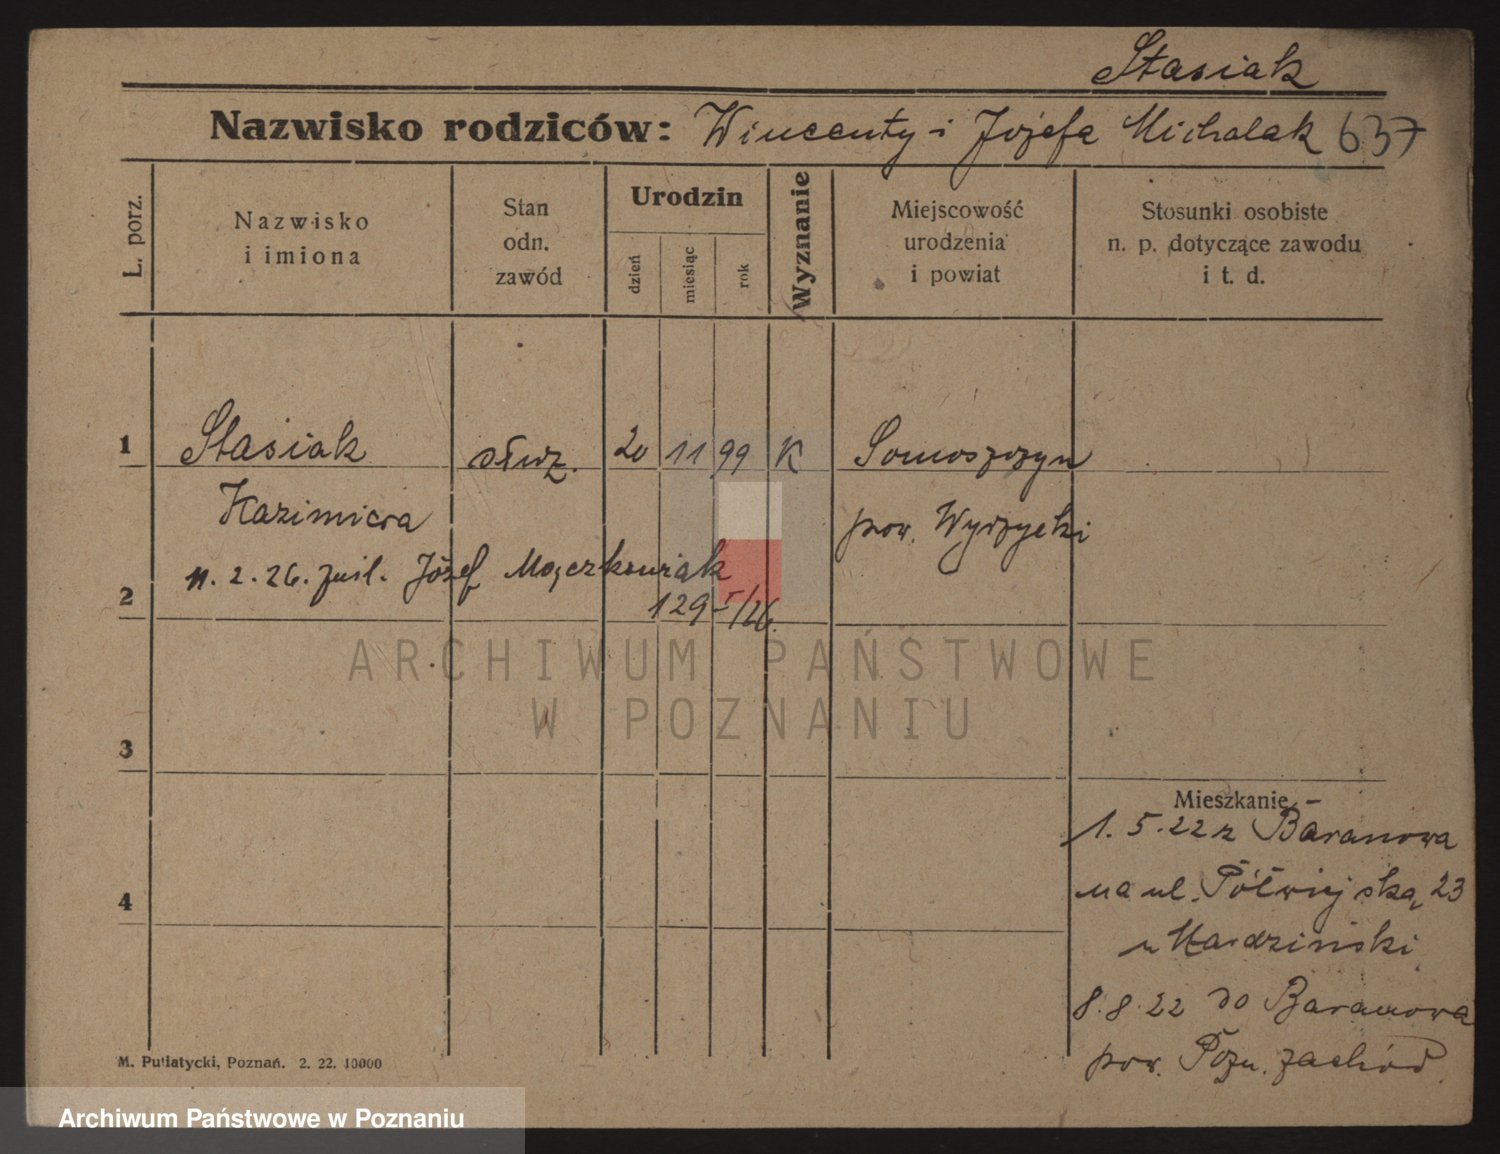 Stasiak
Nazwisko rodziców: Wincenty i Józefa Michalak 637
L. porz.
Nazwisko
i imiona
Stan
odn.
zawód
Urodzin
dzień
miesiąc
rok
Wyznanie
Miejscowość
urodzenia
i powiat
Stosunki osobiste
n. p. dotyczące zawodu
i t. d.
1 Stasiak służ. 20 11 99 K Somoszczyn
Kazimiera pow. Wyrzycki
2 n. 2. 26. Józef
129 I/26.
3
Mieszkanie
1. 5. 22 z Baranowa
4 na ul. Półwiejską 23
u Mardziński
8. 8. 22 do Baranowa
pow. Pozn. zachód
M. Putiatycki, Poznań. 2. 22. 10000
ARCHIWUM PAŃSTWOWE
W POZNANIU
Archiwum Państwowe w Poznaniu